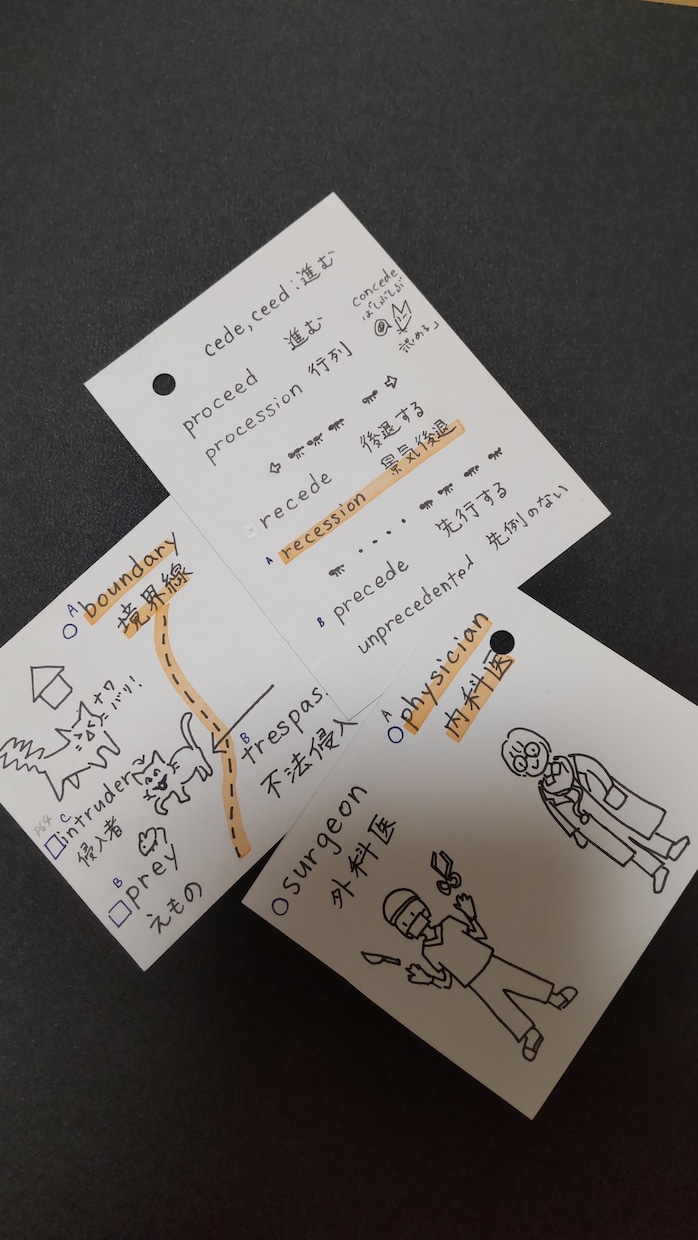 cede, ceed : 進む
concede
しぶしぶ
認める」
proceed 進む
procession 行列
recede 後退する
A recession 景気後退
B precede 先行する
unprecedented 先例のない
A boundary
境界線
ナワ
バリ!
B trespas
不法侵入
p64
C intruder
侵入者
B prey
えもの
A physician
内科医
surgeon
外科医